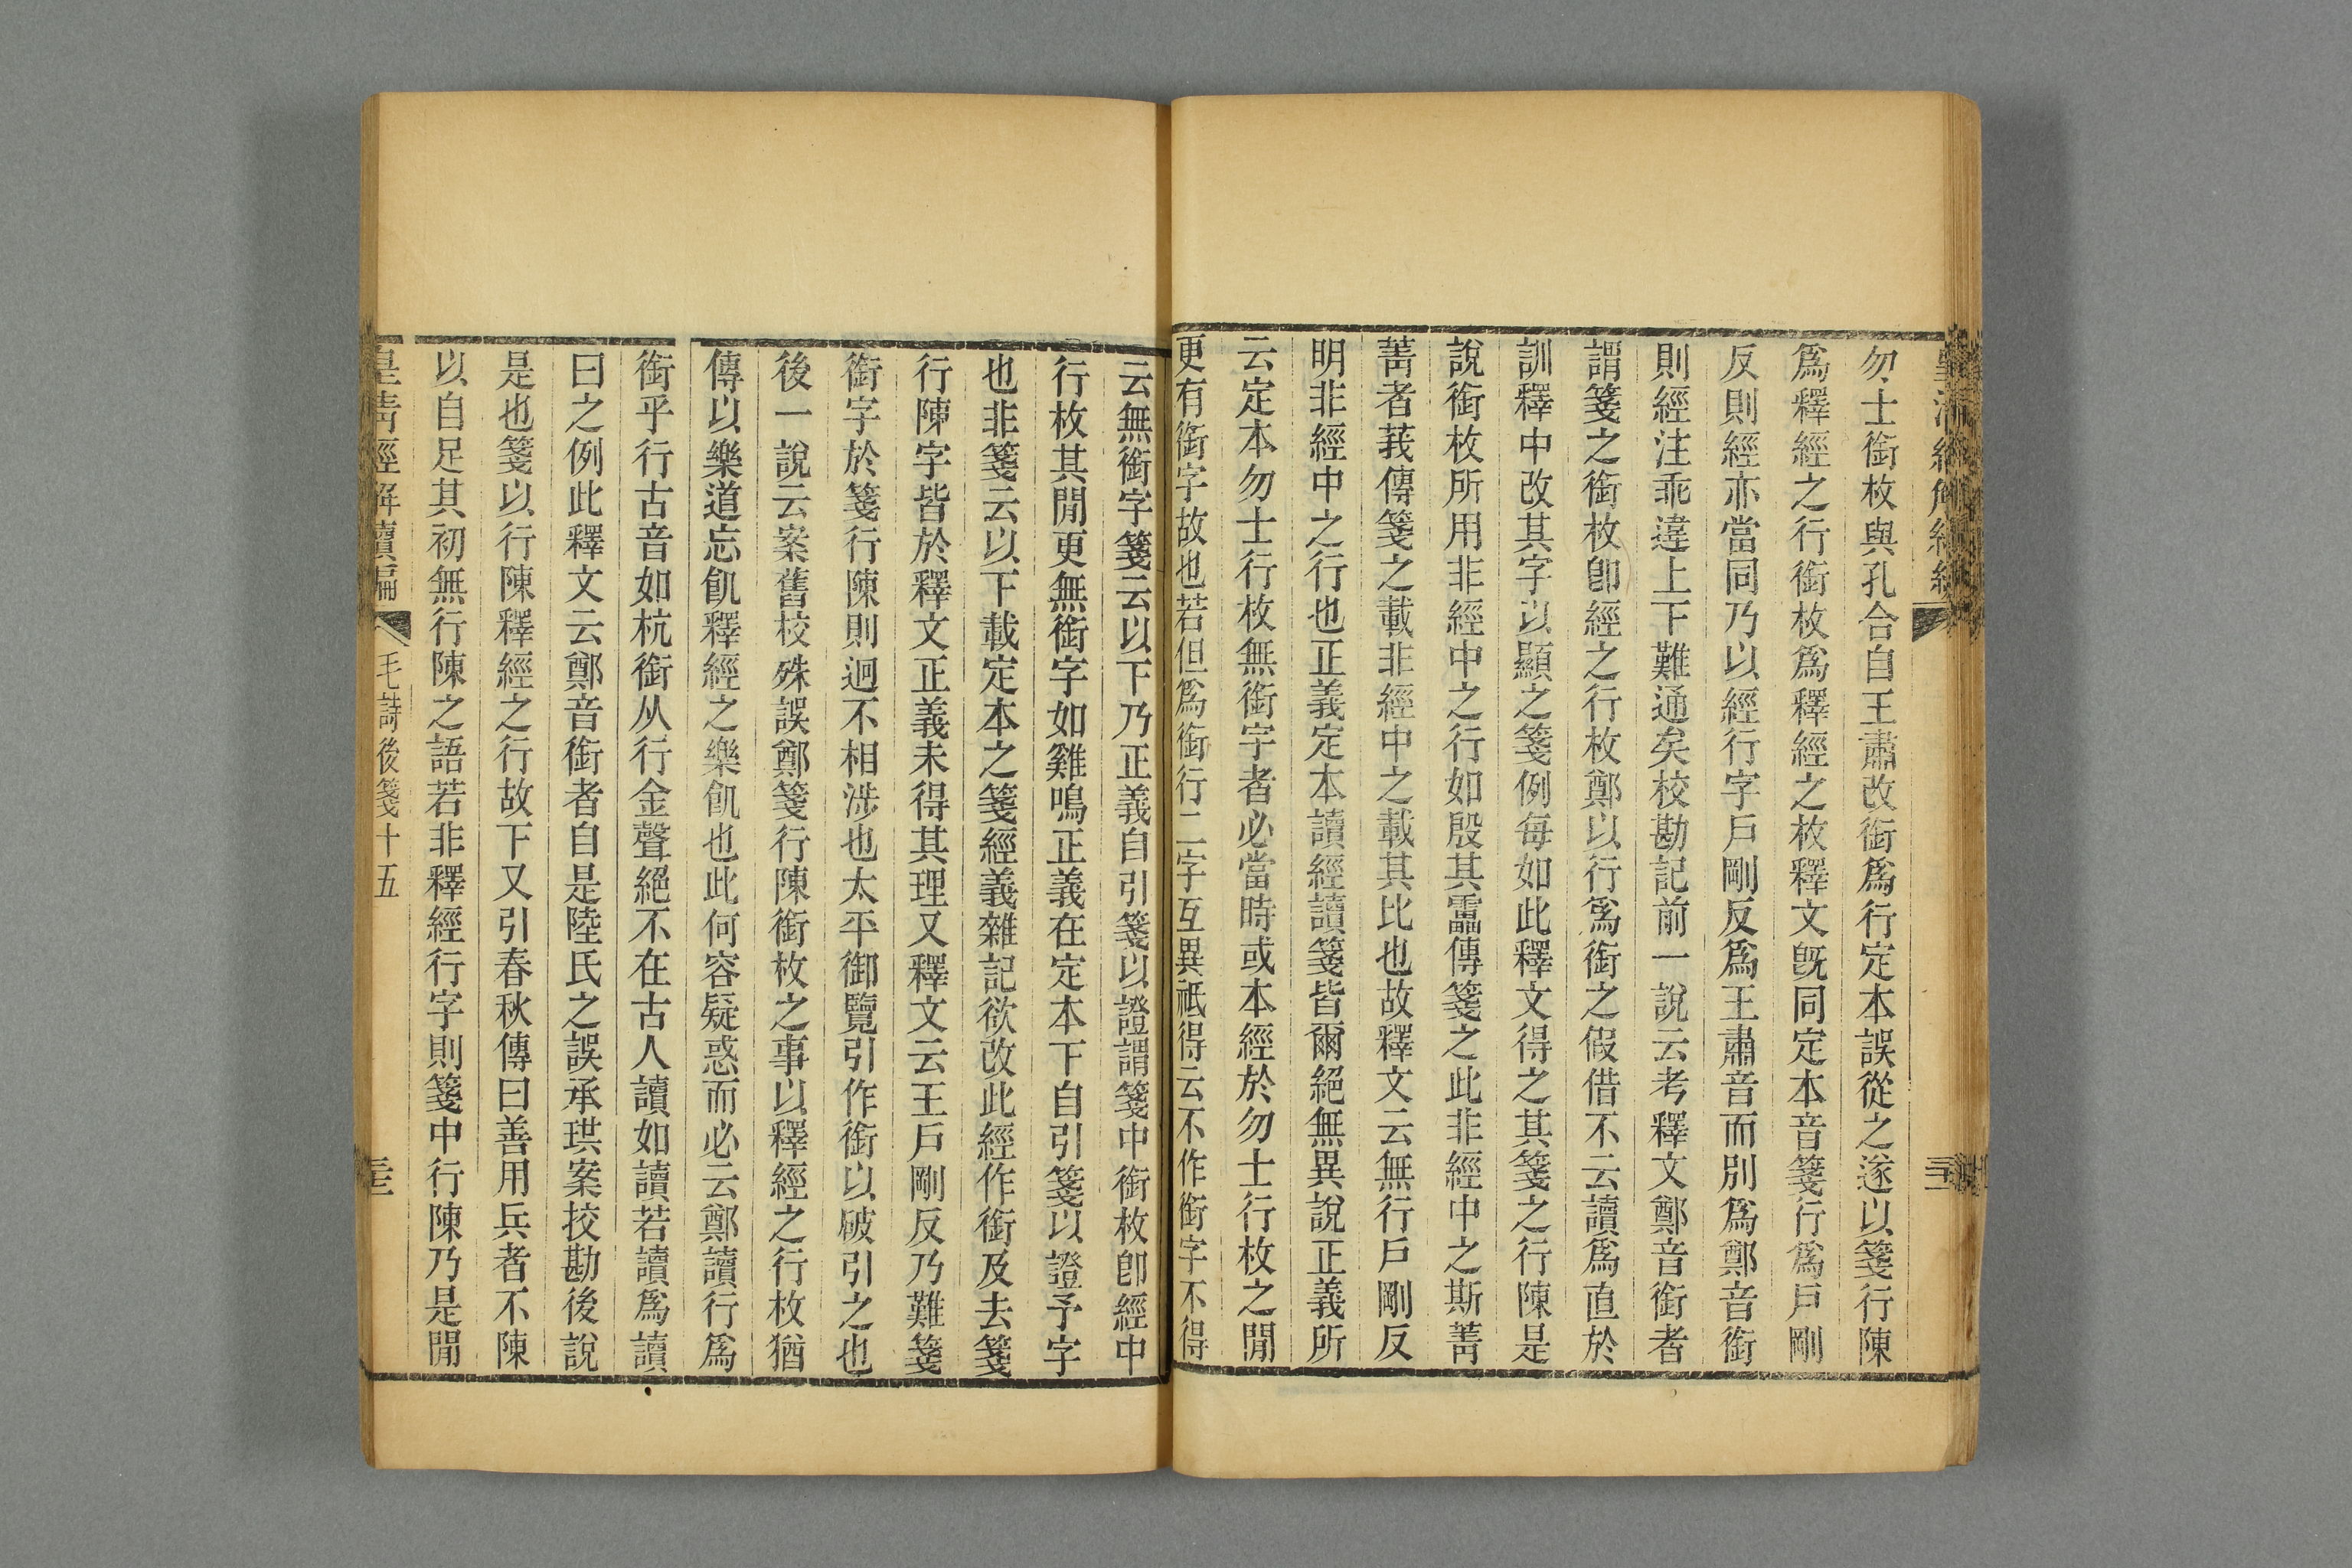 勿士銜枚與孔合自王肅改銜爲行定本誤從之遂以箋行陳
爲釋經之行銜枚爲釋經之枚釋文旣同定本音箋行爲戸剛
反則經亦當同乃以經行字戸剛反爲王肅音而別爲鄭音銜
則經注乖違上下難通矣校勘記前一說云考釋文鄭音銜者
謂箋之銜枚卽經之行枚鄭以行爲銜之假借不云讀爲直於
訓釋中改其字以顯之箋例每如此釋文得之其箋之行陳是
說銜枚所用非經中之行如殷其靁傳箋之此非經中之斯菁
菁者莪傳箋之載非經中之載其比也故釋文云無行戸剛反
明非經中之行也正義定本讀經讀箋皆爾絕無異說正義所
云定本勿士行枚無銜字者必當時或本經於勿士行枚之閒
更有銜字故也若但爲銜行二字互異祇得云不作銜字不得
云無銜字箋云以下乃正義自引箋以證謂箋中銜枚卽經中
行枚其閒更無銜字如雞鳴正義在定本下自引箋以證予字
也非箋云以下載定本之箋經義雜記欲改此經作銜及去箋
行陳字皆於釋文正義未得其理又釋文云王戸剛反乃難箋
銜字於箋行陳則迥不相涉也太平御覽引作銜以破引之也
後一說云案舊校殊誤鄭箋行陳銜枚之事以釋經之行枚猶
傳以樂道忘飢釋經之樂飢也此何容疑惑而必云鄭讀行爲
銜乎行古音如杭銜从行金聲絕不在古人讀如讀若讀爲讀
曰之例此釋文云鄭音銜者自是陸氏之誤承珙案挍勘後說
是也箋以行陳釋經之行故下又引春秋傳曰善用兵者不陳
以自足其初無行陳之語若非釋經行字則箋中行陳乃是閒
皇淸經解續編
毛詩後箋十五